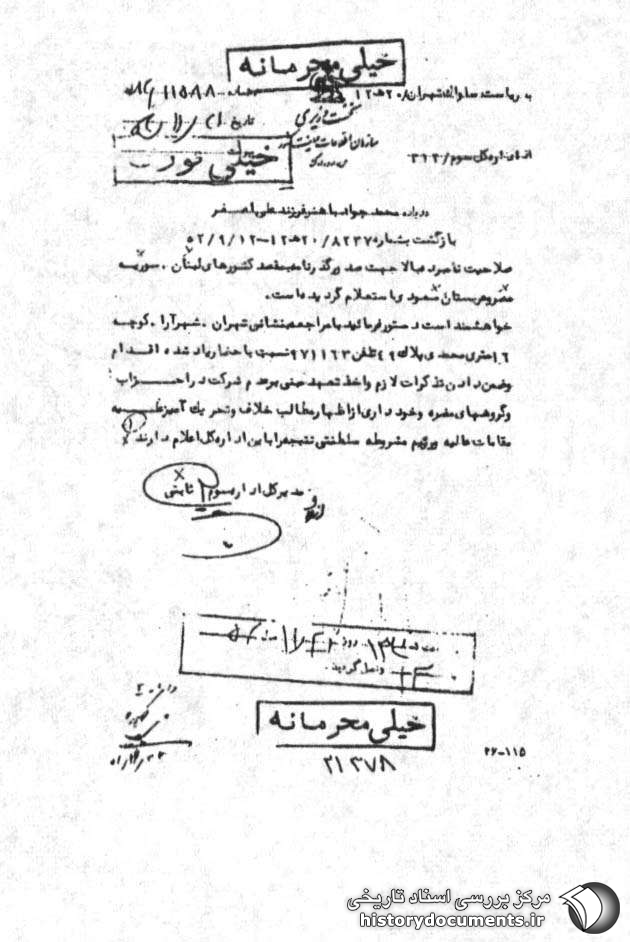 خیلی محرمانه
به ریاست ساواک تهران/۲۰هـ۱۲
شماره ۱۱۵۸۸
تاریخ
نخست وزیری
سازمان اطلاعات و امنیت کشور
خیلی فوری
از اداره کل سوم/۳۱۲
درباره محمد جواد باهنر فرزند علی اصغر
بازگشت بشماره ۸۲۳۷/۲۰هـ۱۲-۵۲/۹/۱۲
صلاحیت نامبرده بالا جهت صدور گذرنامه بمقصد کشورهای لبنان . سوریه
مصر و عربستان سعودی استعلام گردیده است.
خواهشمند است دستور فرمائید با مراجعه بنشانی تهران . شهرآرا . کوچه
۱۶ متری محمدی پلاک ۴۹ تلفن ۹۷۱۱۶۳ نسبت با حضار یاد شده اقدام
وضمن دادن تذکرات لازم و اخذ تعهد مبنی بر عدم شرکت در احزاب
و گروههای مضره و خودداری از اظهار مطالب خلاف و تحریک آمیز علیه
مقامات عالیه و رژیم مشروطه سلطنتی نتیجه را باین اداره کل اعلام دارند
مدیرکل اداره سوم ثابتی
روز
وارد گردید
خیلی محرمانه
۲۱۳۷۸
۲۶-۱۱۵
مرکز بررسی اسناد تاریخی
historydocuments.ir